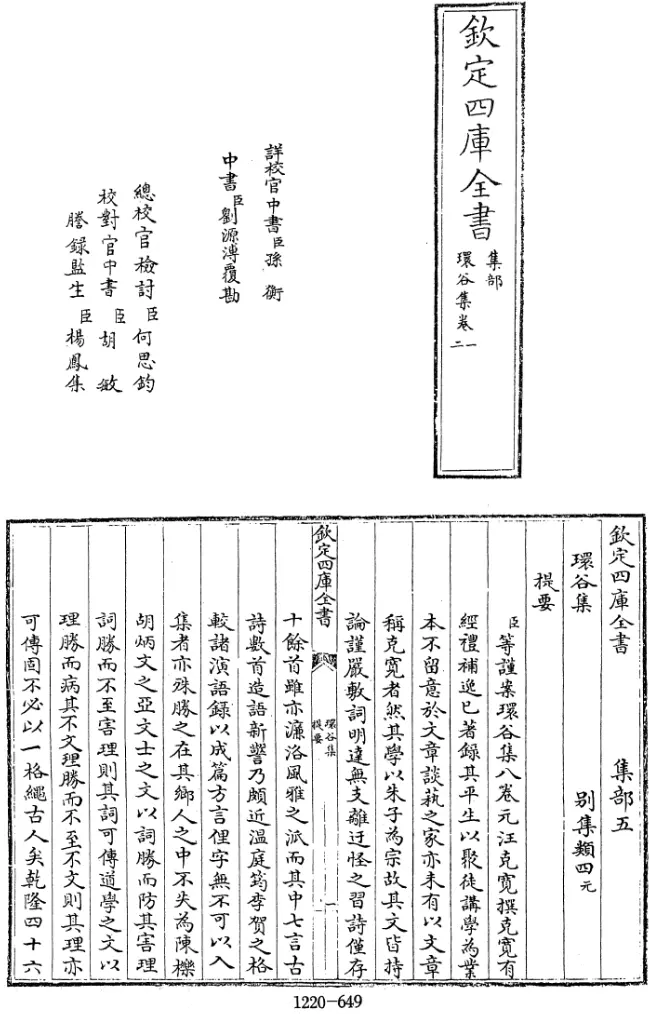 欽定四庫全書
集部
環谷集卷
一
二
詳校官中書臣孫衡
中書臣劉源溥覆勘
總校官檢討臣何思鈞
校對官中書臣胡敏
謄錄監生臣楊鳳集
欽定四庫全書 集部五
環谷集 别集類四元
提要
臣等謹案環谷集八卷元汪克寛撰克寛有
經禮補逸已著録其平生以聚徒講學為業
本不留意於文章談藝之家亦未有以文章
稱克寛者然其學以朱子為宗故其文皆持
論謹嚴敷詞明達無支離迂怪之習詩僅存
欽定四庫全書
環谷集
提要
一
十餘首雖亦濂洛風雅之派而其中七言古
詩數首造語新警乃頗近温庭筠李賀之格
較諸演語録以成篇方言俚字無不可以入
集者亦殊勝之在其鄉人之中不失為陳櫟
胡炳文之亞文士之文以詞勝而防其害理
詞勝而不至害理則其詞可傳道學之文以
理勝而病其不文理勝而不至不文則其理亦
可傳固不必以一格繩古人矣乾隆四十六
1220-649